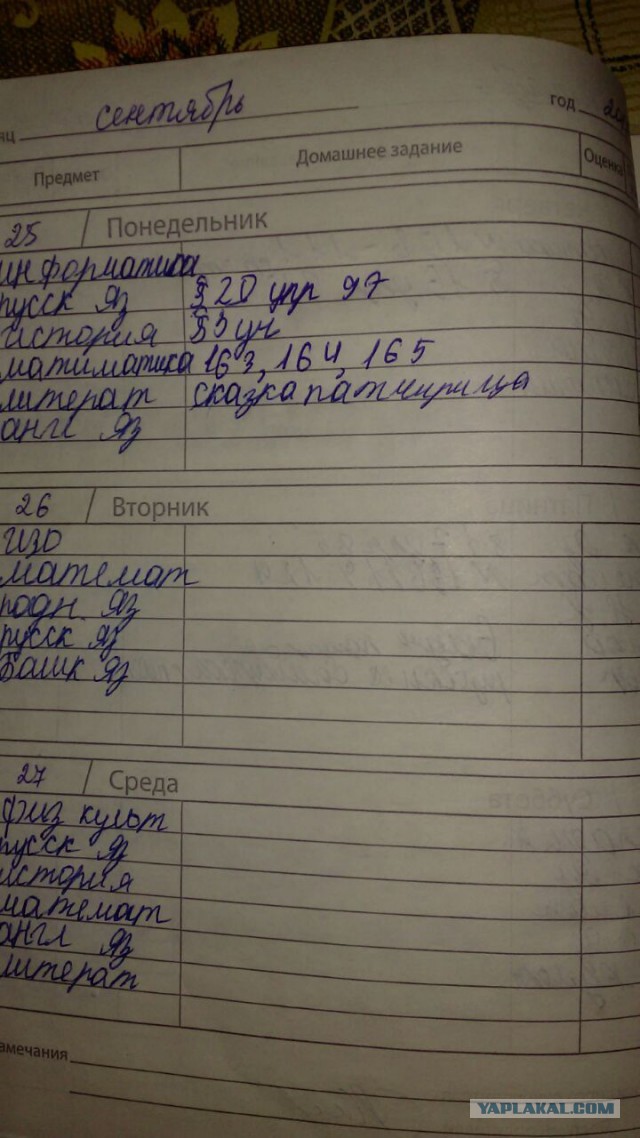 яц сентябрь год 20
Предмет Домашнее задание Оценка
25 Понедельник
информатика
русск яз § 20 упр 97
история § 3 уч
матиматика 163, 164, 165
литерат сказка патчирица
англ яз
26 Вторник
изо
математ
родн яз
русск яз
башк яз
27 Среда
физ культ
русск яз
история
математ
англ яз
литерат
амечания
YAPLAKAL.COM